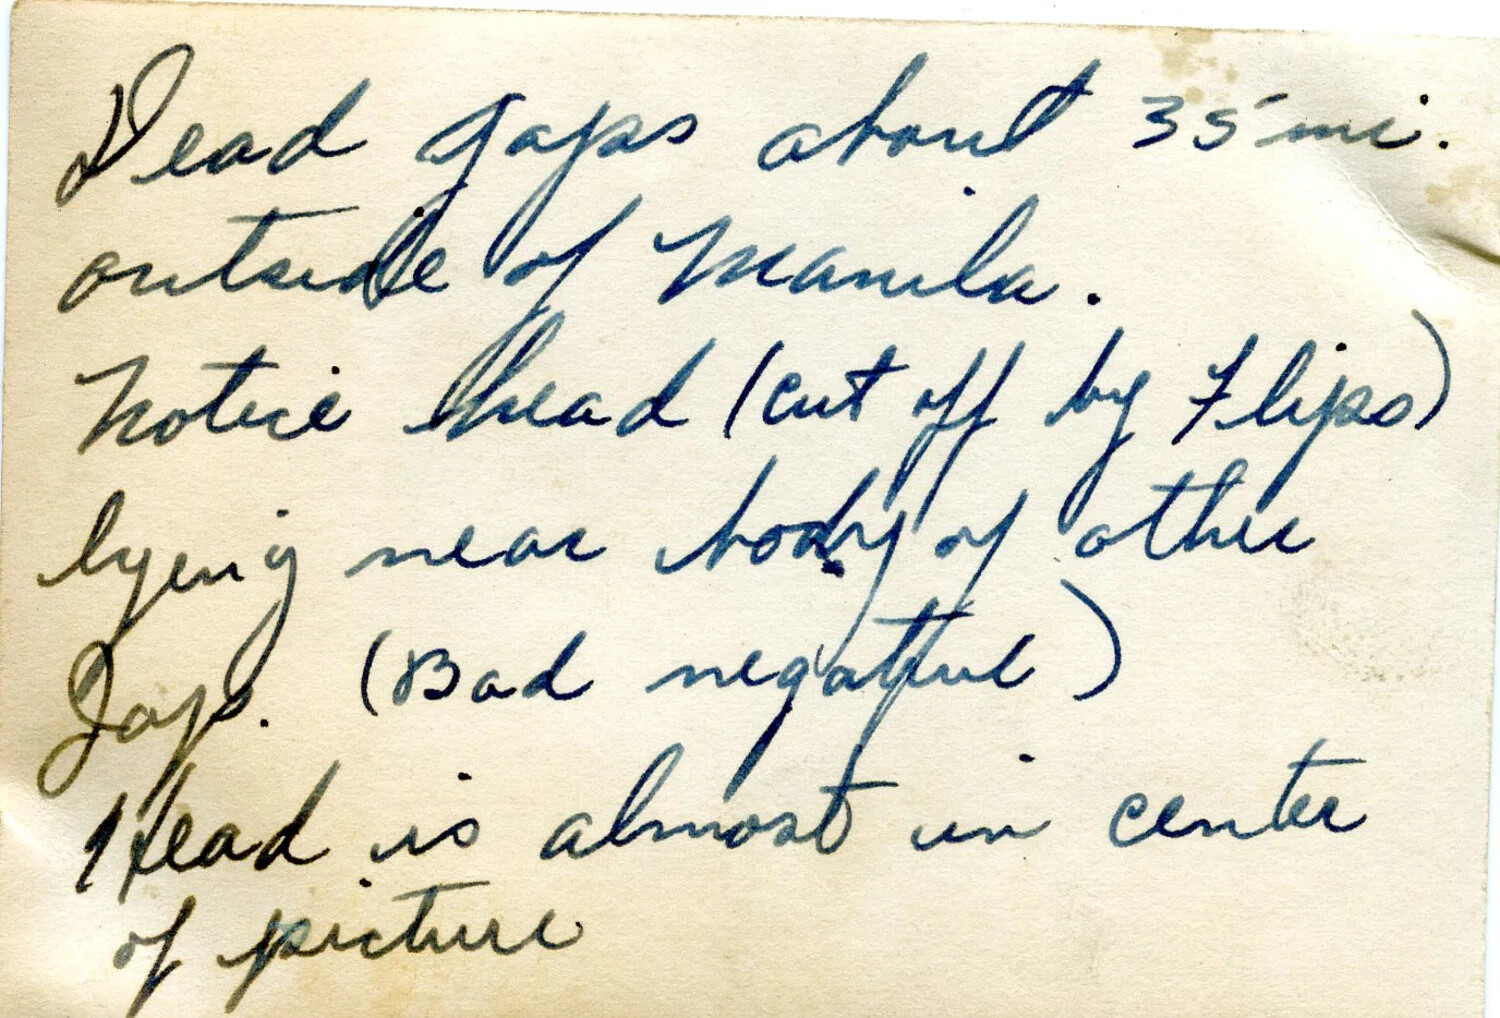 Dead Japs about 35 mi.
outside of Manila.
Notice head (cut off by Flips)
lying near body of other
Jap. (Bad negative)
Head is almost in center
of picture